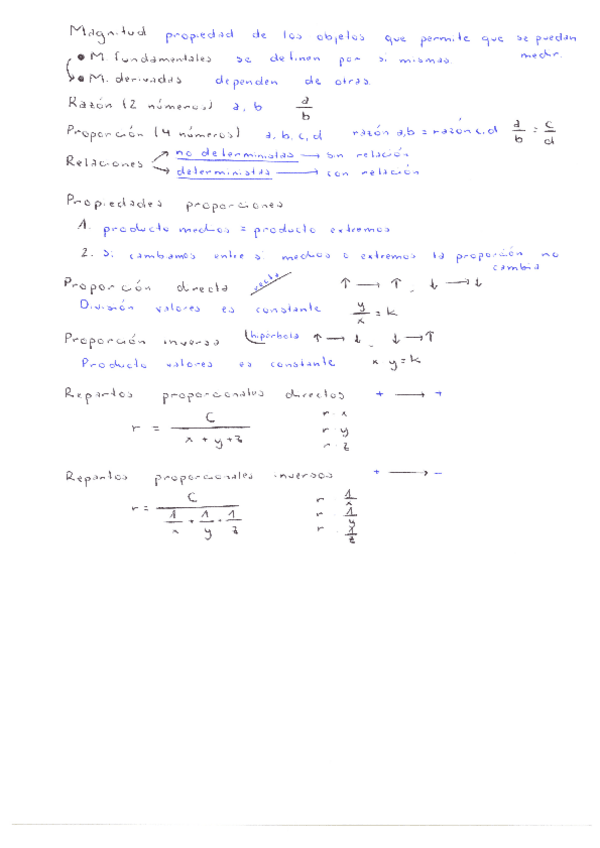 Magnitud propiedad de los objetos que permite que se puedan medir.
• M. fundamentales se definen por si mismas.
• M. derivadas dependen de otras.
Razón (2 números) a, b a/b
Proporción (4 números) a, b, c, d razón a,b = razón c,d a/b = c/d
Relaciones no deterministas → sin relación
deterministas → con relación
Propiedades proporciones
1. producto medios = producto extremos
2. Si cambiamos entre si medios o extremos la proporción no cambia
Proporción directa recta ↑ → ↑ . ↓ → ↓
División valores es constante y/x = k
Proporción inversa hipérbola ↑ → ↓ . ↓ → ↑
Producto valores es constante x y = k
Repartos proporcionales directos + → +
r = C / (x + y + z)
r · x
r · y
r · z
Repartos proporcionales inversos + → −
r = C / (1/x + 1/y + 1/z)
r · 1/x
r · 1/y
r · 1/z